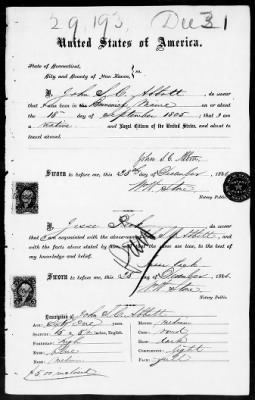 29,193. Dec 31
United States of America.
State of Connecticut,
City and County of New Haven, } ss.
I, John S. C. Abbott, do swear
that I was born in Brunswick Maine on or about
the 18th day of September 1805; that I am
a native and Loyal Citizen of the United States, and about to
travel abroad.
John S. C. Abbott
Sworn to before me, this 25th day of December, 186
Notary Public.
I, Jesse, do swear
that I am acquainted with the above named J. S. C. Abbott, and
with the facts above stated by him, and that the same are true, to the best of
my knowledge and belief.
Sworn to before me, this 25 day of December, 186
Notary Public.
Description of John S. C. Abbott
Age: Sixty One years. Mouth: medium
Stature: 5 feet inches, English. Chin: round
Forehead: high Hair: dark
Eyes: blue Complexion: light
Nose: medium Face: full
$5.00 inclosed